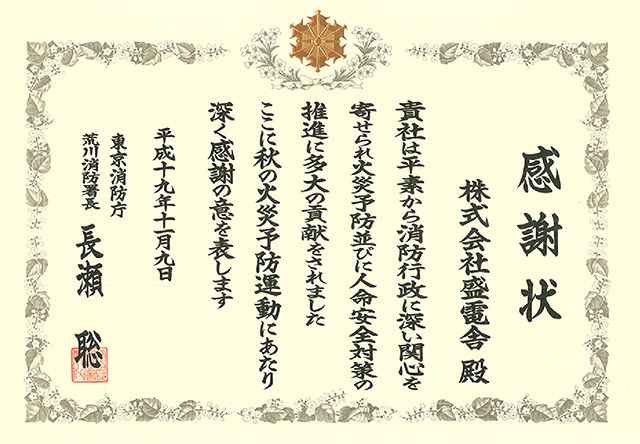 感謝状
株式会社盛電舎 殿
貴社は平素から消防行政に深い関心を
寄せられ火災予防並びに人命安全対策の
推進に多大の貢献をされました
ここに秋の火災予防運動にあたり
深く感謝の意を表します
平成十九年十一月九日
東京消防庁
荒川消防署長 長瀬 聡